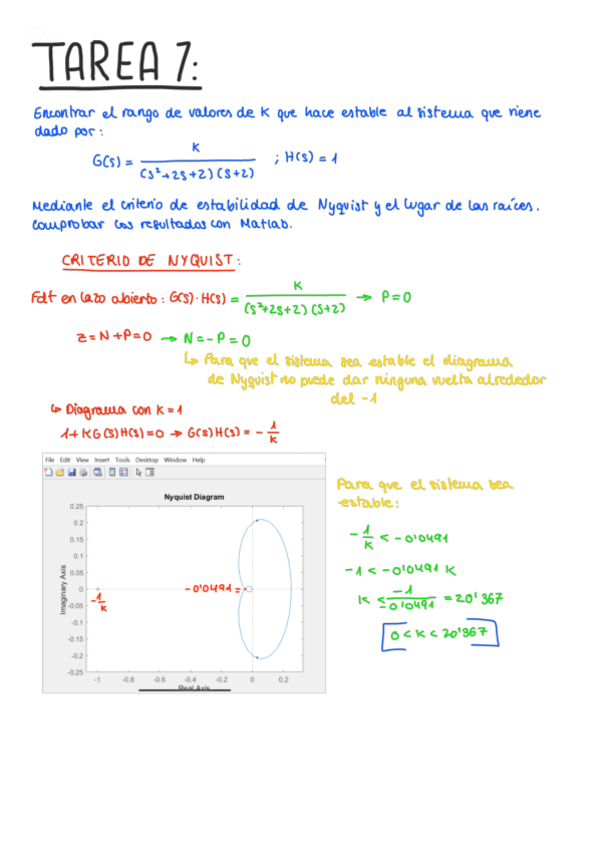 TAREA 7:
Encontrar el rango de valores de K que hace estable al sistema que viene
dado por:
G(s) = K / (s²+2s+2)(s+2) ; H(s) = 1
Mediante el criterio de estabilidad de Nyquist y el lugar de las raíces.
Comprobar los resultados con Matlab.
CRITERIO DE NYQUIST:
Fdt en lazo abierto: G(s)·H(s) = K / (s²+2s+2)(s+2) → P=0
z = N+P=0 → N=-P=0
↳ Para que el sistema sea estable el diagrama
de Nyquist no puede dar ninguna vuelta alrededor
del -1
↳ Diagrama con K=1
1+KG(s)H(s)=0 → G(s)H(s) = -1/K
File Edit View Insert Tools Desktop Window Help
Nyquist Diagram
0.25
0.2
0.15
0.1
0.05
0
-0.05
-0.1
-0.15
-0.2
-0.25
Imaginary Axis
-1/K
-0'0491=
-1 -0.8 -0.6 -0.4 -0.2 0 0.2
Real Axis
Para que el sistema sea
estable:
-1/K < -0'0491
-1 < -0'0491 K
K ≤ -1/-0'0491 = 20'367
0 < K < 20'367